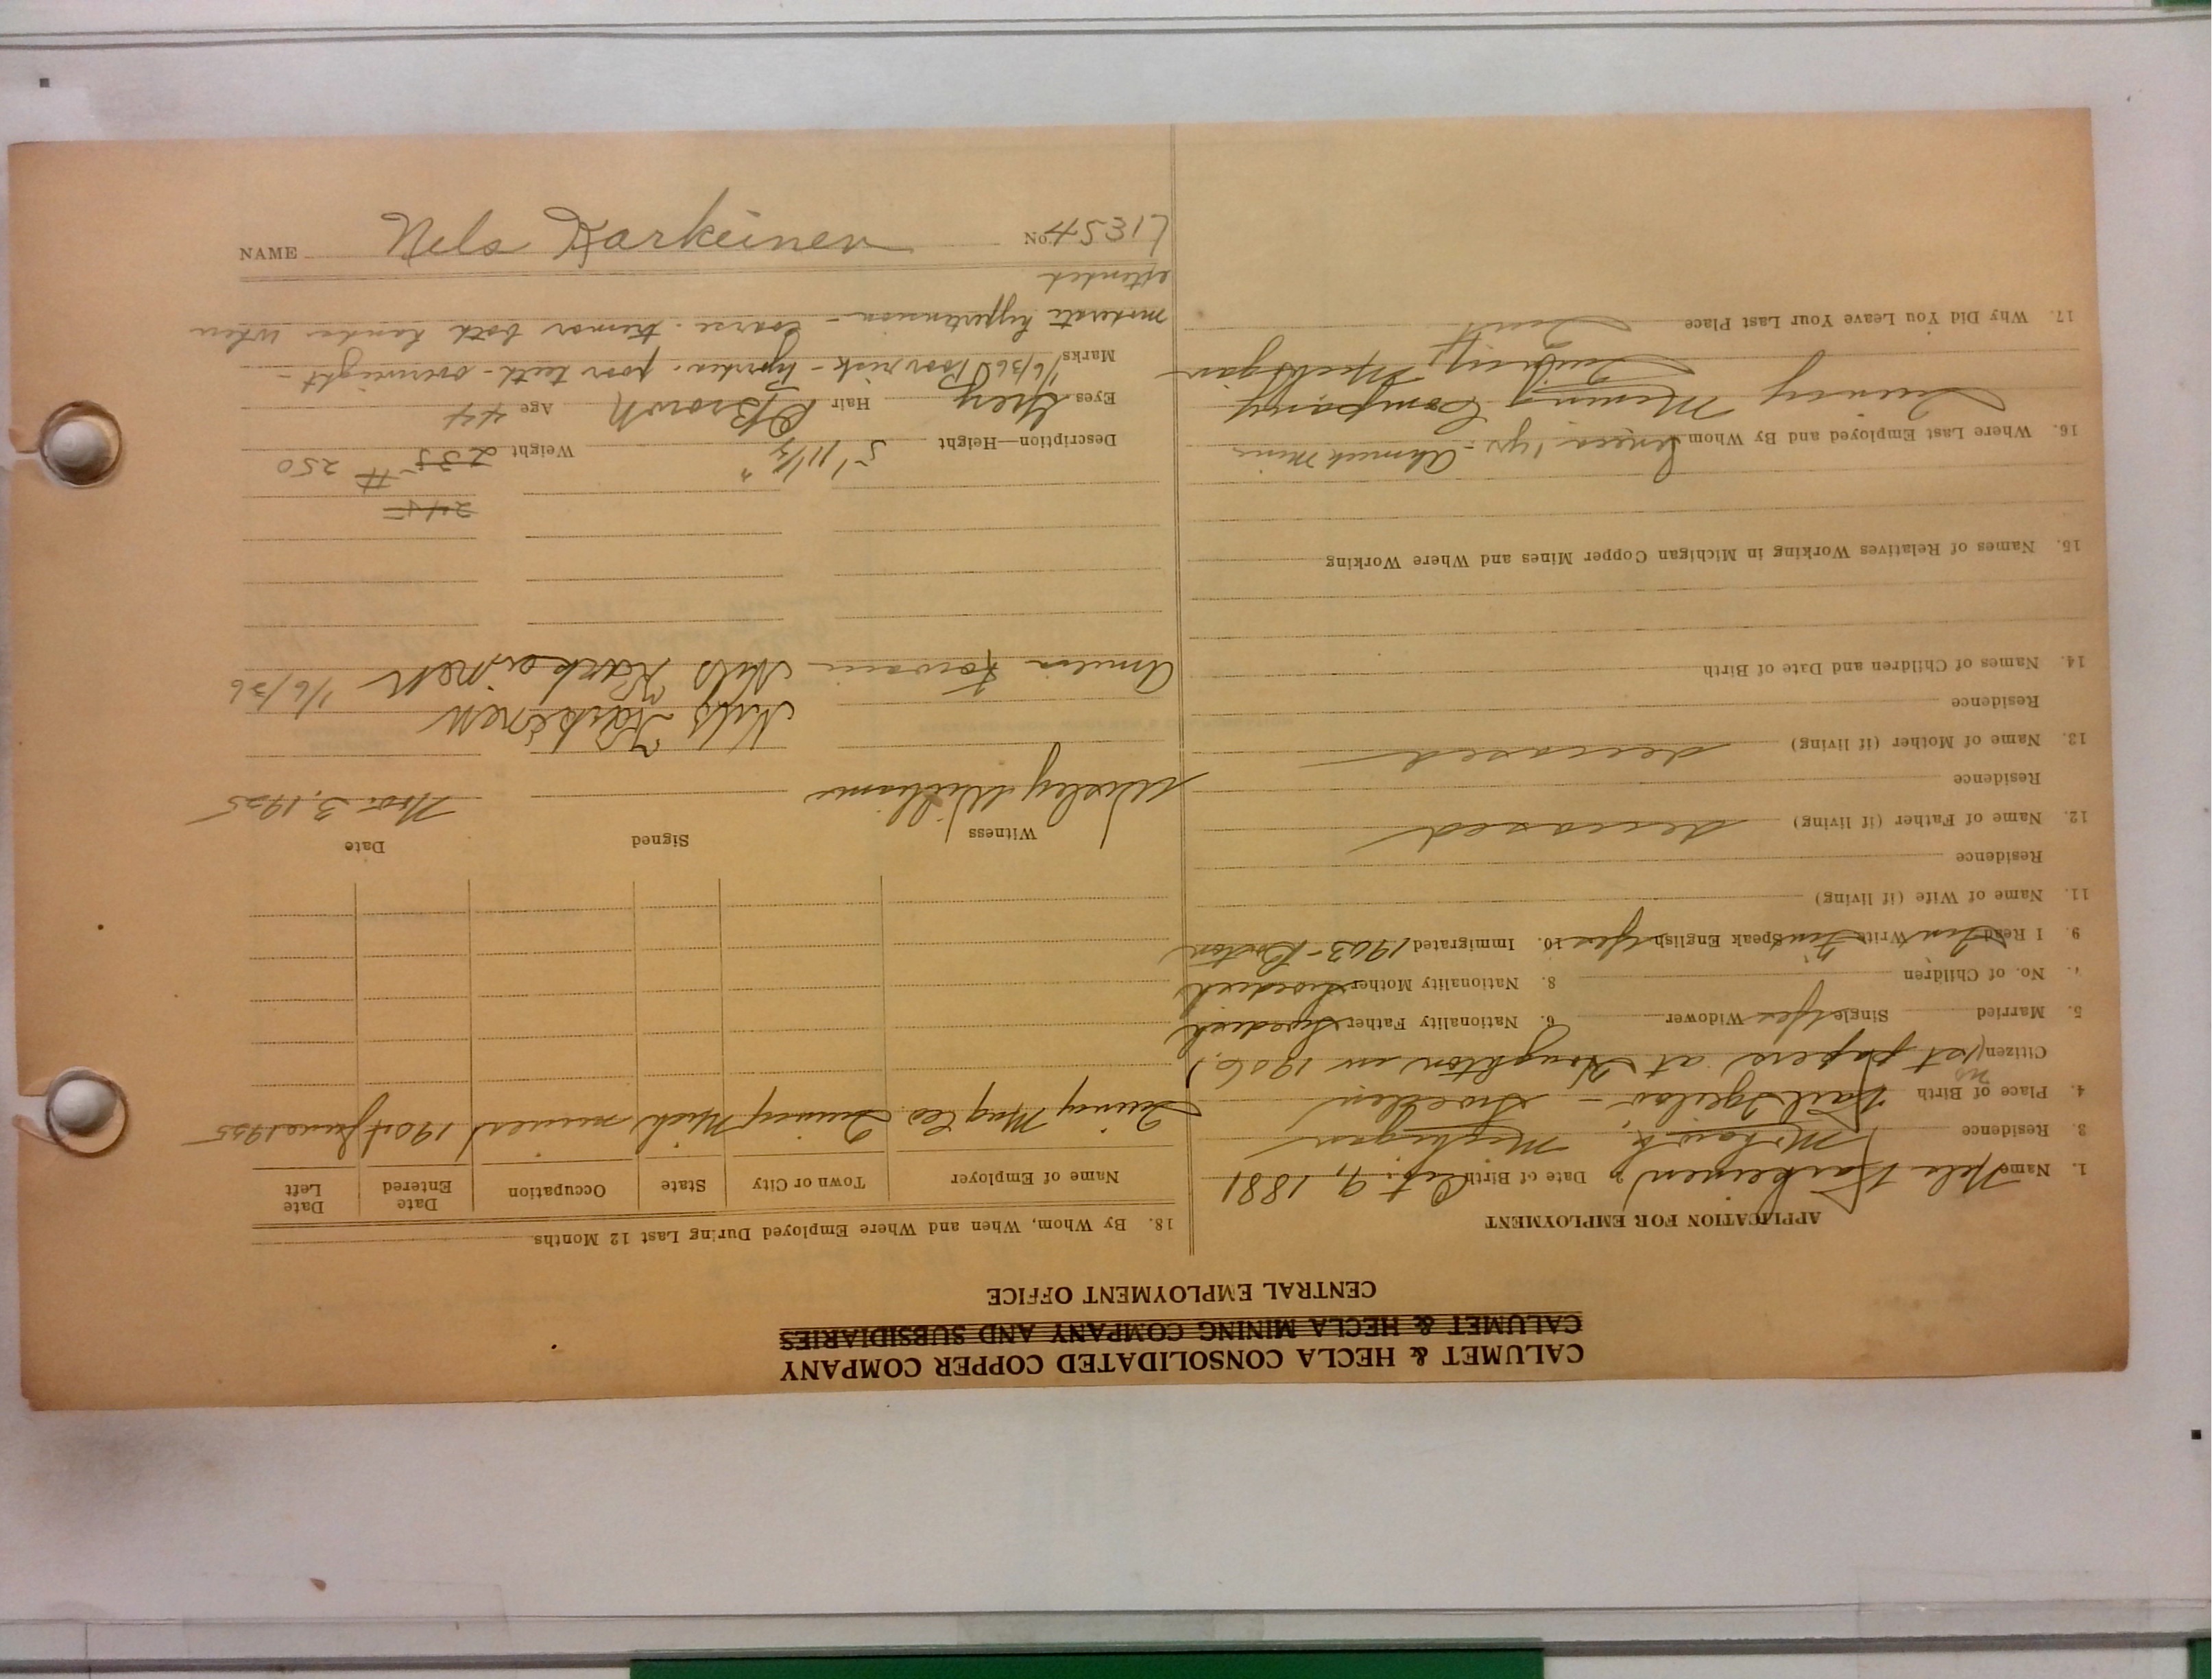 CALUMET & HECLA CONSOLIDATED COPPER COMPANY
CALUMET & HECLA MINING COMPANY AND SUBSIDIARIES
CENTRAL EMPLOYMENT OFFICE
APPLICATION FOR EMPLOYMENT
1. Name Nels Karkeinen 2. Date of Birth Oct. 9, 1881
3. Residence Mohawk, Michigan
4. Place of Birth - Sweden
Citizen no (1st papers at Houghton in 1906)
5. Married Single Yes Widower 6. Nationality Father Swedish
7. No. of Children 8. Nationality Mother Swedish
9. I Read Fin Write Fin Speak English Yes 10. Immigrated 1903 - Boston
11. Name of Wife (if living)
Residence
12. Name of Father (if living) deceased
Residence
13. Name of Mother (if living) deceased
Residence
14. Names of Children and Date of Birth
15. Names of Relatives Working in Michigan Copper Mines and Where Working
16. Where Last Employed and By Whom Seneca 1 yr - Ahmeek Mine
Quincy Mining Company
Quincy, Michigan
17. Why Did You Leave Your Last Place Quit
18. By Whom, When and Where Employed During Last 12 Months
Name of Employer Town or City State Occupation Date Entered Date Left
Quincy Mng Co. Quincy Mich miner 1904 June 1925
Witness Signed Date
Wesley Williams Nov 3, 1925
Nels Karkenen
Amelia Nels Karkainen 1/6/36
245
Description—Height 5' 11 1/2" Weight 235 # 250
Eyes Grey Hair Brown Age 44
Marks 1/6/36 Poor risk - poor teeth - overweight -
moderate hypertension - coarse tremor both hands when
extended
NAME Nels Karkeinen No. 45317